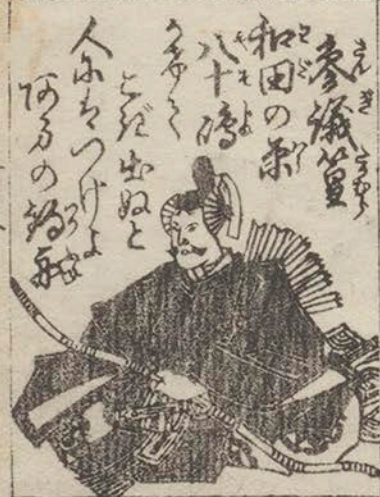 參議篁
和田の原
八十嶋
かけて
こぎ出ぬと
人にはつげよ
阿万の釣舟